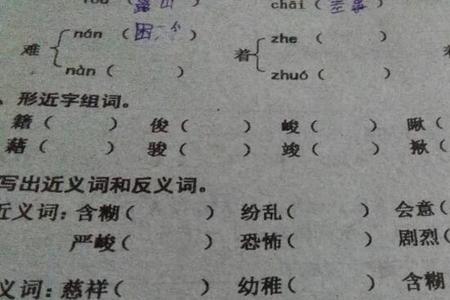 chāi (
难 nán (困 ) 着 zhe ( )
nàn ( ) zhuó ( )
、形近字组词。
籍( ) 俊( ) 峻( ) 瞅(
藉( ) 骏( ) 竣( ) 揪(
写出近义词和反义词。
近义词:含糊( ) 纷乱( ) 会意(
严峻( ) 恐怖( ) 剧烈(
义词:慈祥( ) 幼稚( ) 含糊